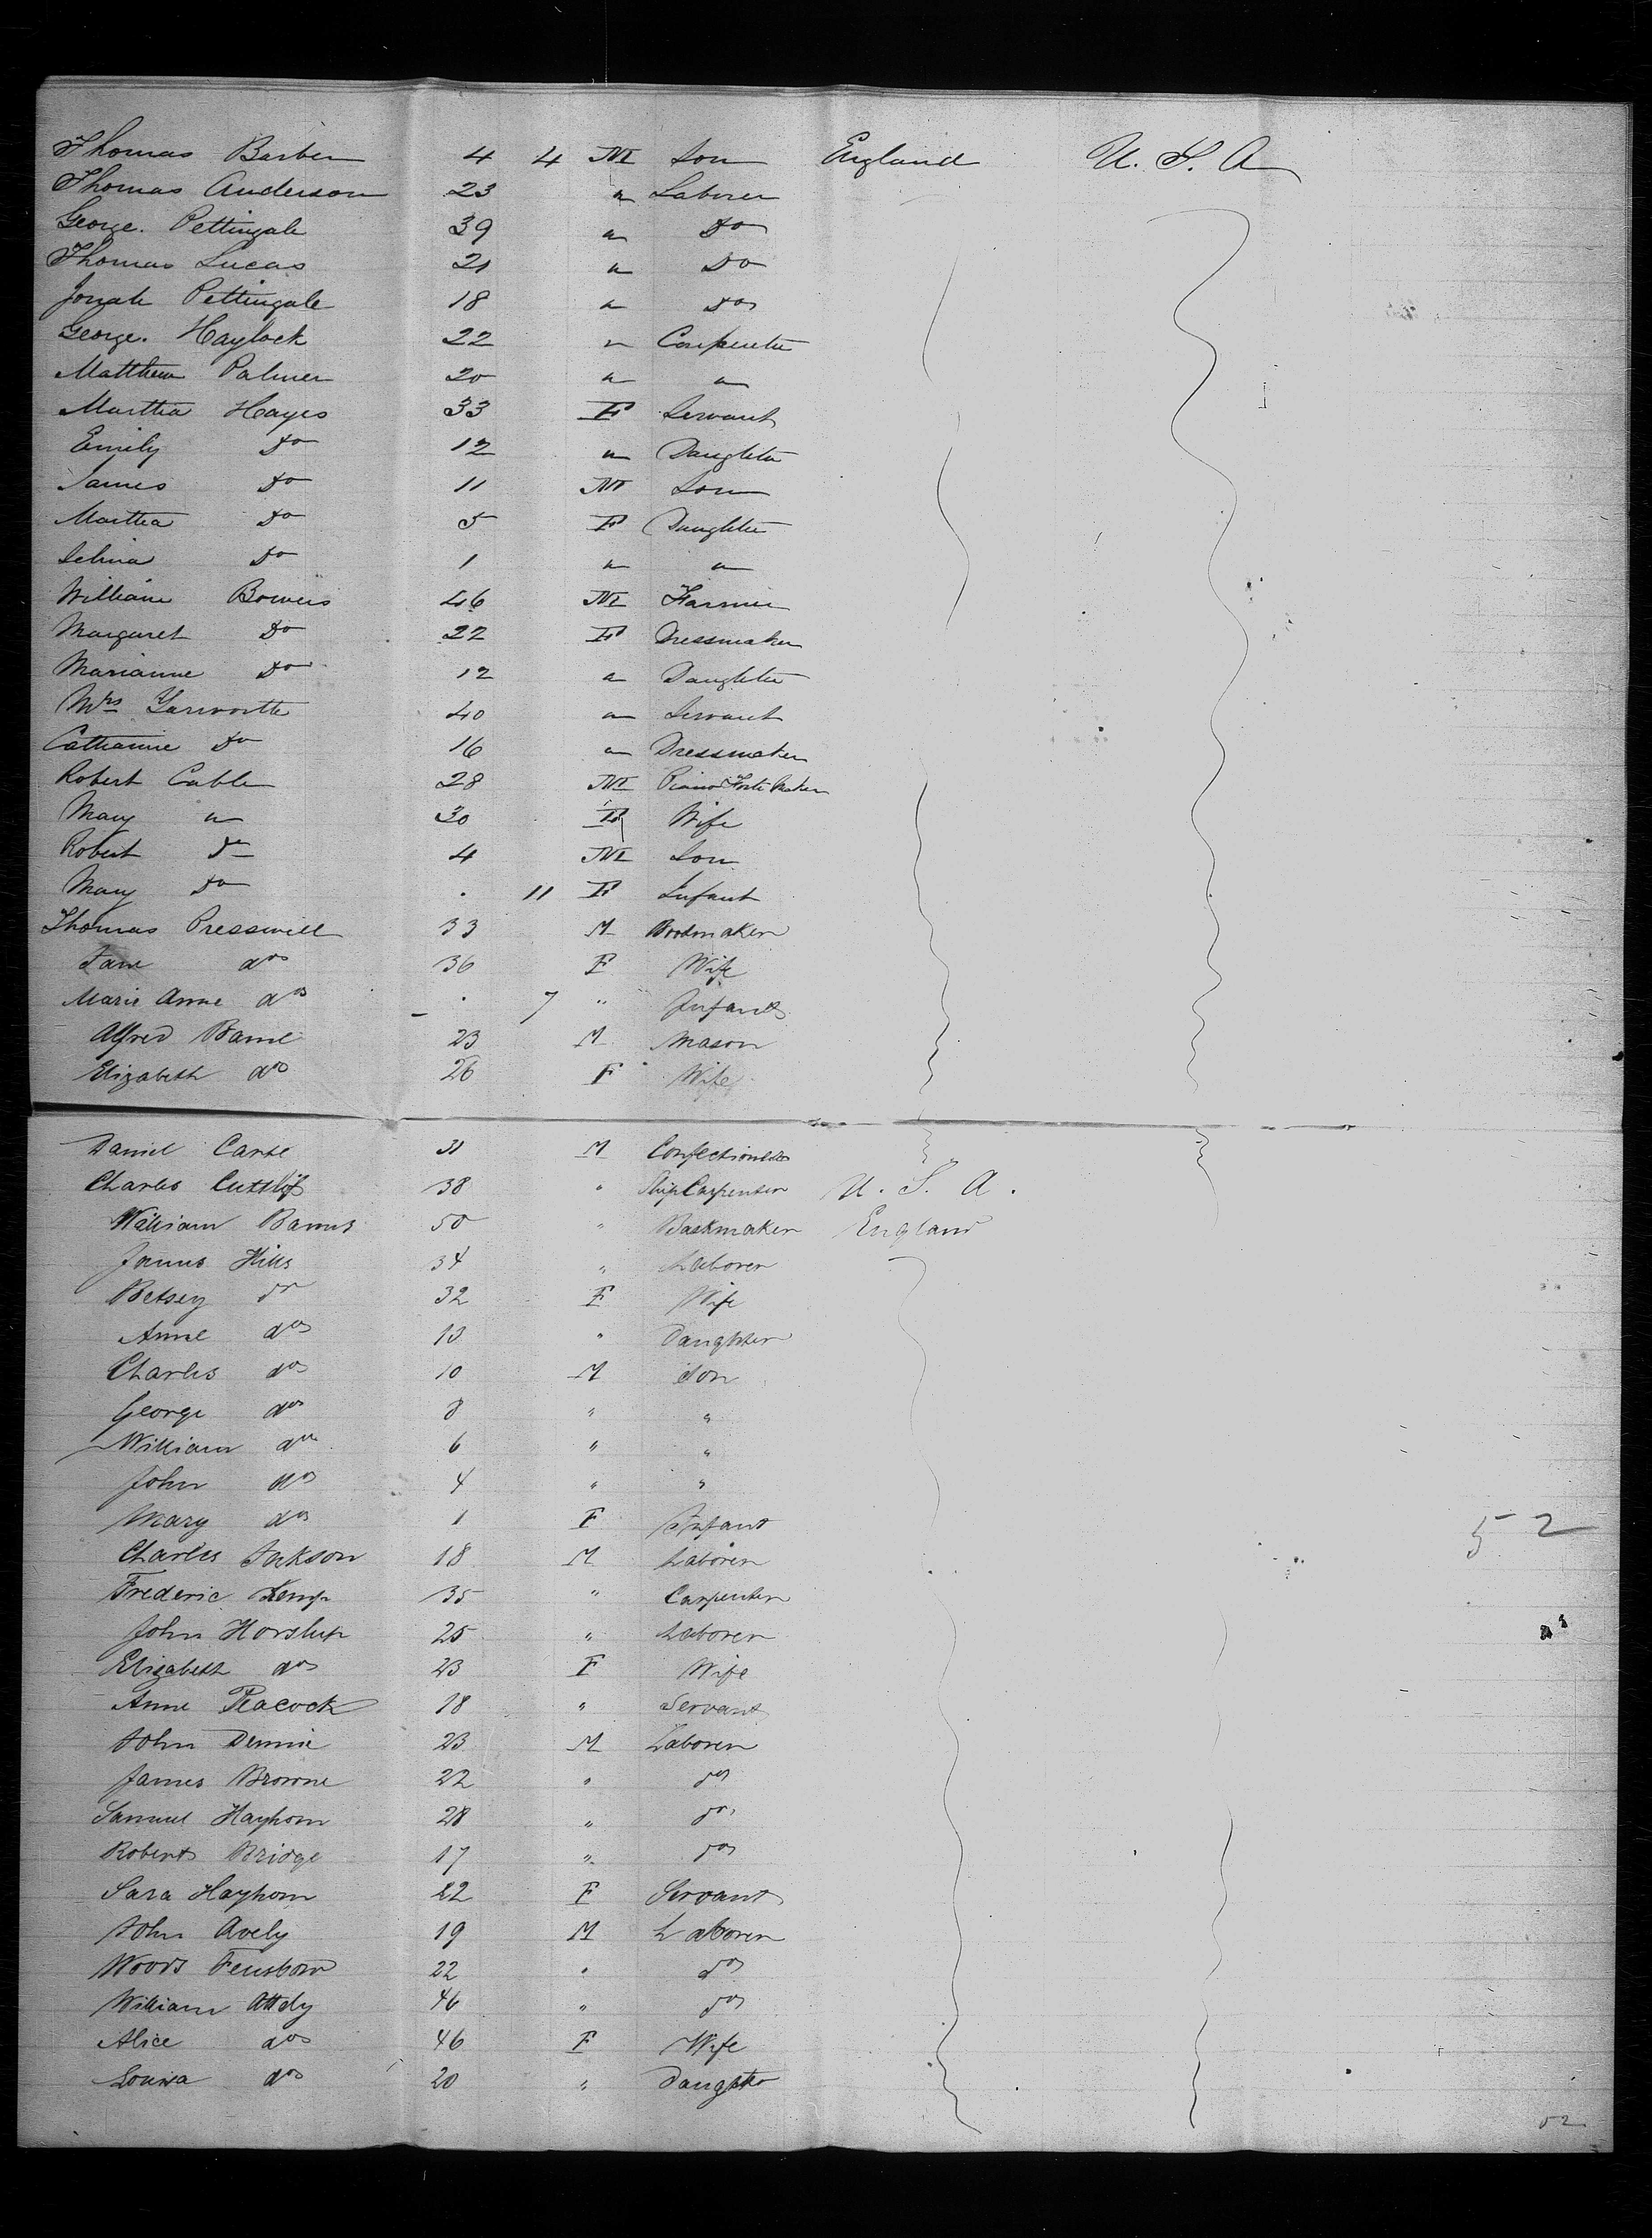 Thomas Barber 4 4 M Son England U. S. A
Thomas Anderson 23 " Laborer
George. Pettingale 39 " Do
Thomas Lucas 21 " Do
Jonah Pettingale 18 " Do
George. Haylock 22 " Carpenter
Matthew Palmer 20 " "
Martha Hayes 33 F Servant
Emily Do 12 " Daughter
James Do 11 M Son
Martha Do 5 F Daughter
Selina Do 1 " "
William Bowers 46 M Farmer
Margaret Do 22 F Dressmaker
Marianne Do 12 " Daughter
Mrs Yarworth 40 " Servant
Catharine Do 16 " Dressmaker
Robert Cable 28 M Piano Forte Maker
Mary " 30 F Wife
Robert Do 4 M Son
Mary Do . 11 F Infant
Thomas Presswell 33 M Bootmaker
Jane do 36 F Wife
Marie Anne do . 7 " Infant
Alfred 23 M Mason
Elizabeth do 26 F Wife
Daniel 31 M Confectioner
Charles 38 " Ship Carpenter U. S. A.
William 50 " England
James Hills 34 " Laborer
Betsey do 32 F Wife
Anne do 13 " Daughter
Charles do 10 M Son
George do 8 " "
William do 6 " "
John do 4 " "
Mary do 1 F Infant 52
Charles Jakson 18 M Laborer
Frederic Kemp 35 " Carpenter
John Horslup 25 " Laborer
Elizabeth do 23 F Wife
Anne Peacock 18 " Servant
John Dennie 23 M Laborer
James Browne 22 " do
Samuel Hayhom 28 " do
Robert Bridge 17 " do
Sara Hayhom 22 F Servant
John Avely 19 M Laborer
Woods 22 " do
William Attdy 46 " do
Alice do 46 F Wife
Louisa do 20 " Daughter
52